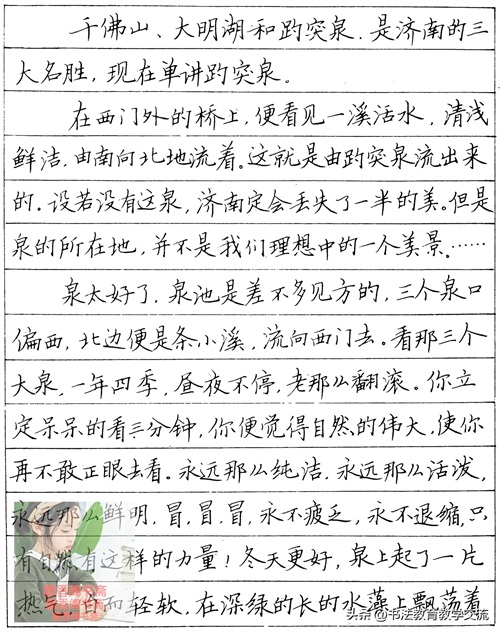 千佛山、大明湖和趵突泉，是济南的三
大名胜，现在单讲趵突泉。
在西门外的桥上，便看见一溪活水，清浅
鲜洁，由南向北地流着。这就是由趵突泉流出来
的。设若没有这泉，济南定会丢失了一半的美。但是
泉的所在地，并不是我们理想中的一个美景。……
泉太好了，泉池是差不多见方的，三个泉口
偏西，北边便是条小溪，流向西门去。看那三个
大泉，一年四季，昼夜不停，老那么翻滚。你立
定呆呆的看三分钟，你便觉得自然的伟大，使你
再不敢正眼去看。永远那么纯洁，永远那么活泼，
永远那么鲜明，冒，冒，冒，永不疲乏，永不退缩，只
有自然有这样的力量！冬天更好，泉上起了一片
热气，白而轻软，在深绿的长的水藻上飘荡着
头条@书法教育教学交流